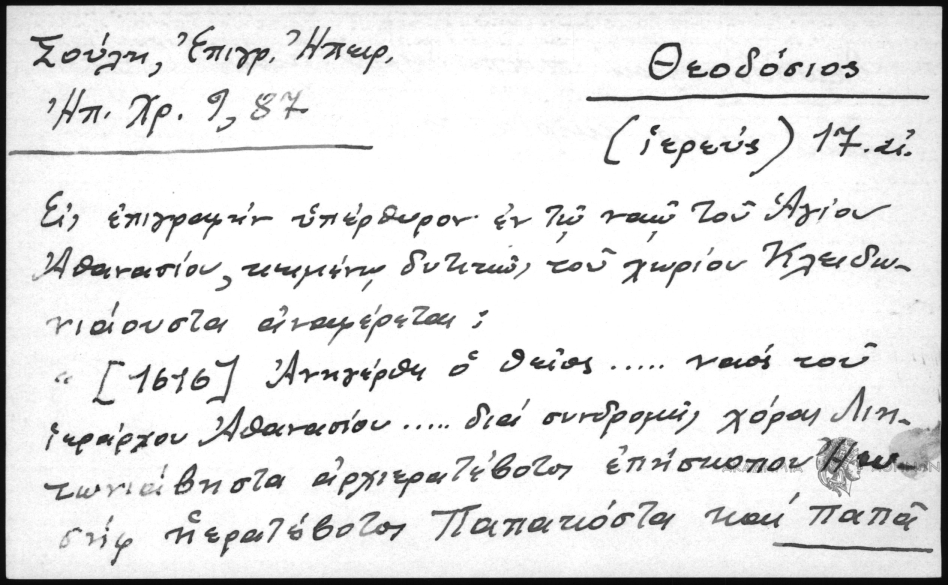 Σούλη, Ἐπιγρ. Ἠπειρ.
Ἠπ. Χρ. 9, 87
Θεοδόσιος
(ἱερεύς) 17. αἰ.
Εἰς ἐπιγραφήν ὑπέρθυρον ἐν τῷ ναῷ τοῦ Ἁγίου
Ἀθανασίου, κειμένῳ δυτικῶς τοῦ χωρίου Κλειδω-
νιάουστα ἀναφέρεται:
" [1616] Ἀνηγέρθη ὁ θεῖος ..... ναός τοῦ
ἱεράρχου Ἀθανασίου ..... διά συνδρομῆς χόρας
τωνιάβηστα ἀρχιερατέβοτος ἐπήσκοπου
σήφ ἡερατέβοτος Παπακόστα καί παπᾶ